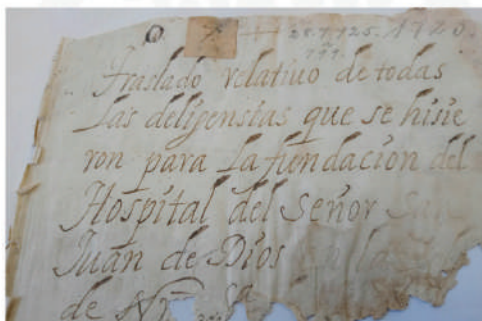 28.7.725. 1720.
Traslado relatiuo de todas
Las deligensias que se hisie
ron para La fundacion del
Hospital del Señor San
Juan de Dios en la
de Nra Sa